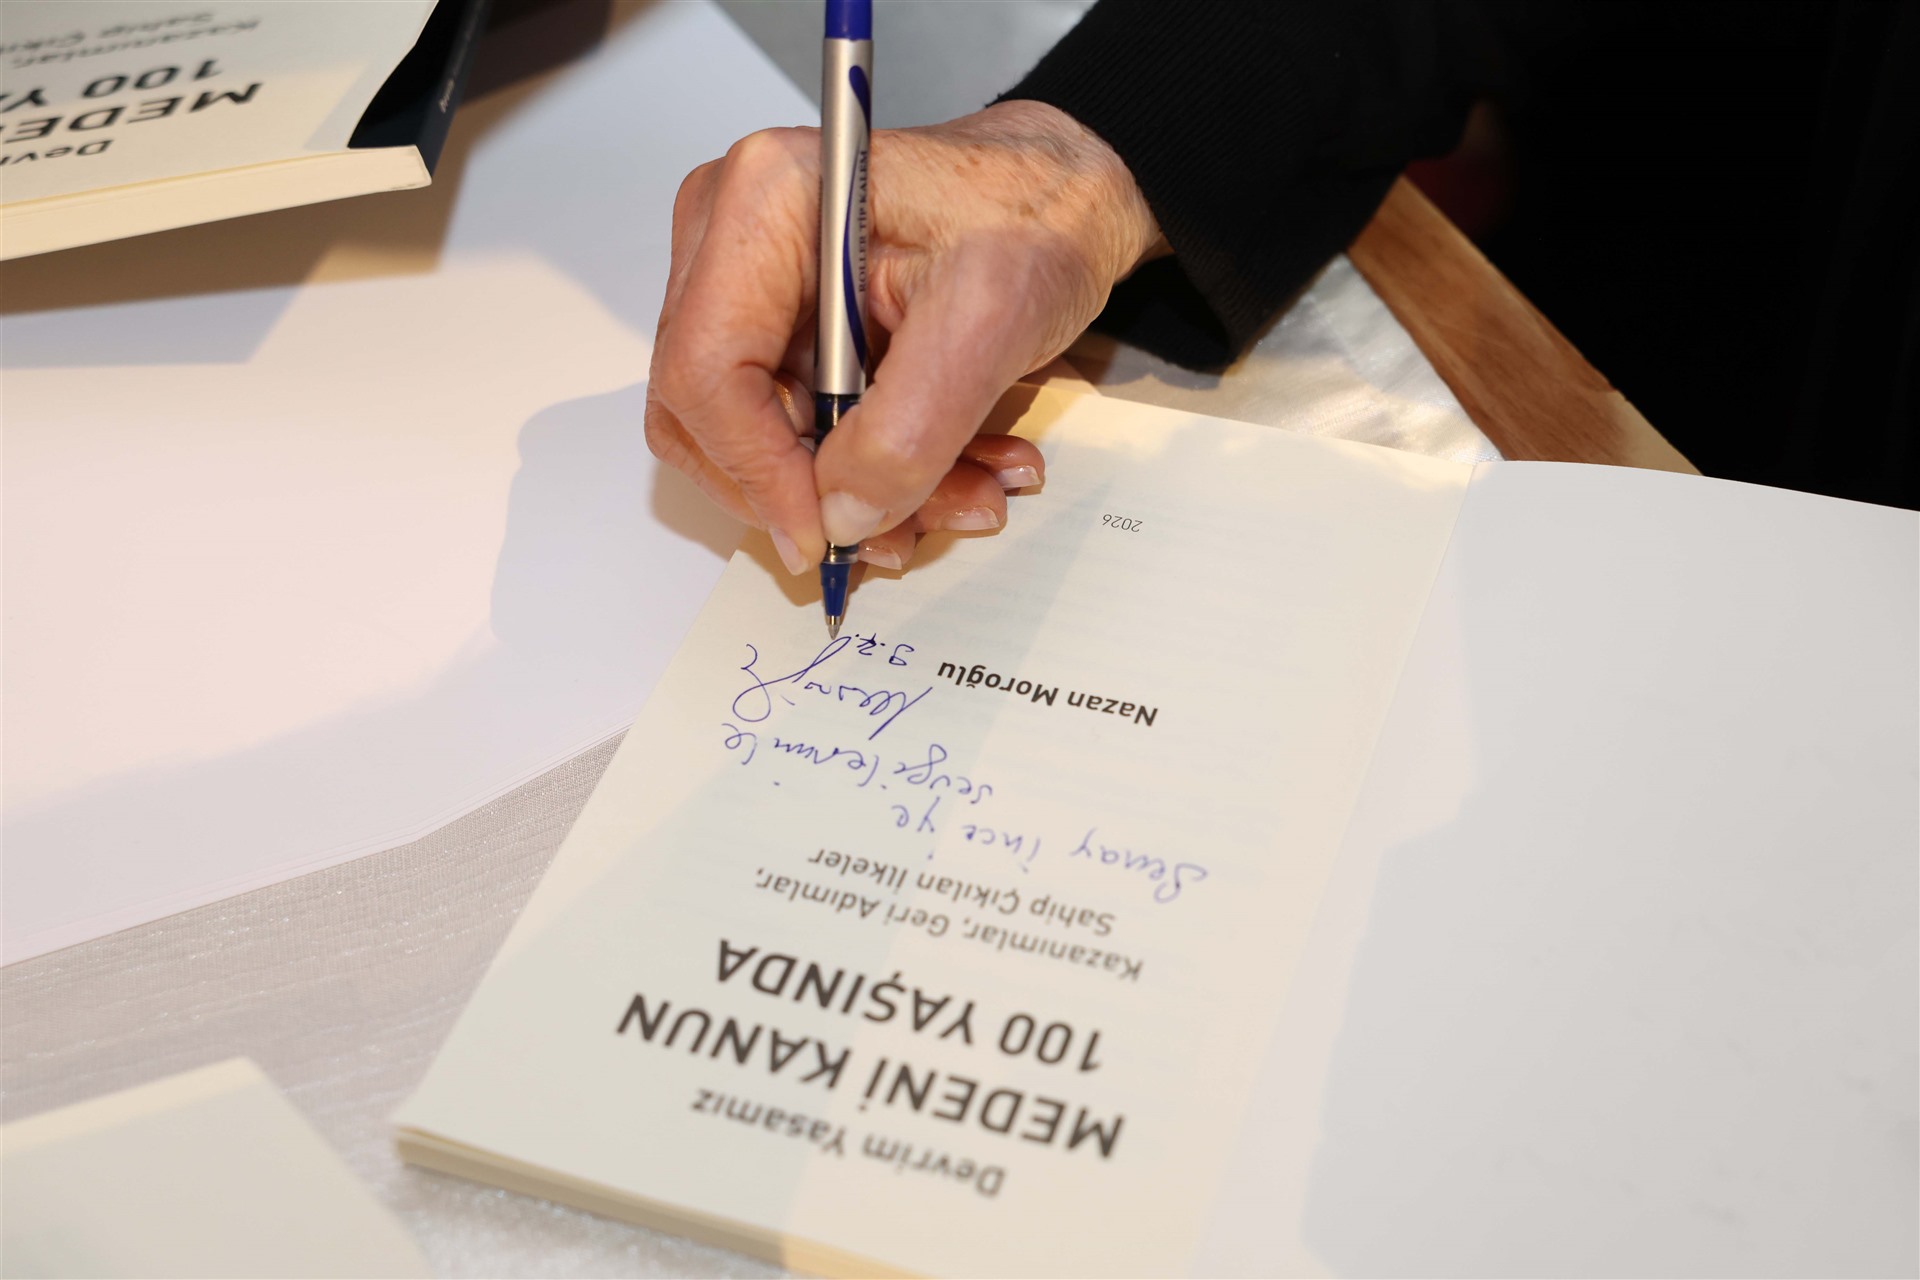 Devrim Yasamız
MEDENİ KANUN
100 YAŞINDA
Kazanımlar, Geri Adımlar,
Sahip Çıkılan İlkeler
Senay İnce'ye
sevgilerimle
Nazan Moroğlu
9.2.
2026
ROLLER TİP KALEM
Devr
MEDE
100 YA
Kazanımlar,
Sahip Çıkıl